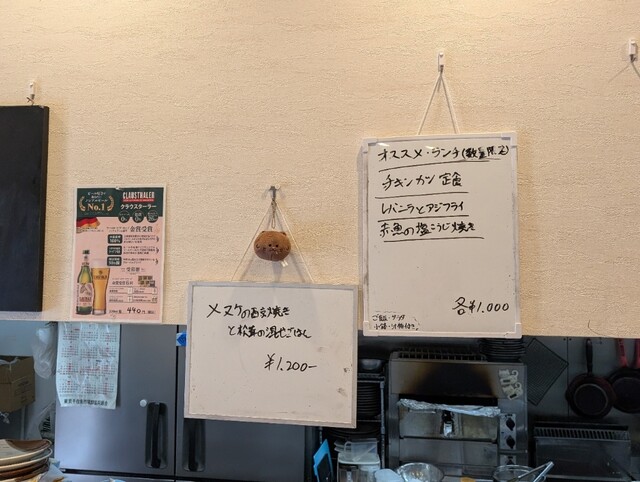 No.1
CLAUSTHALER
クラウスターラー
金賞受賞
440円
メヌケの西京焼き
と松茸の混ぜごはん
¥1,200-
オススメ・ランチ(数量限定)
チキンカツ定食
レバニラとアジフライ
赤魚の塩こうじ焼き
各¥1.000
ご飯・サラダ
小鉢・汁物付き